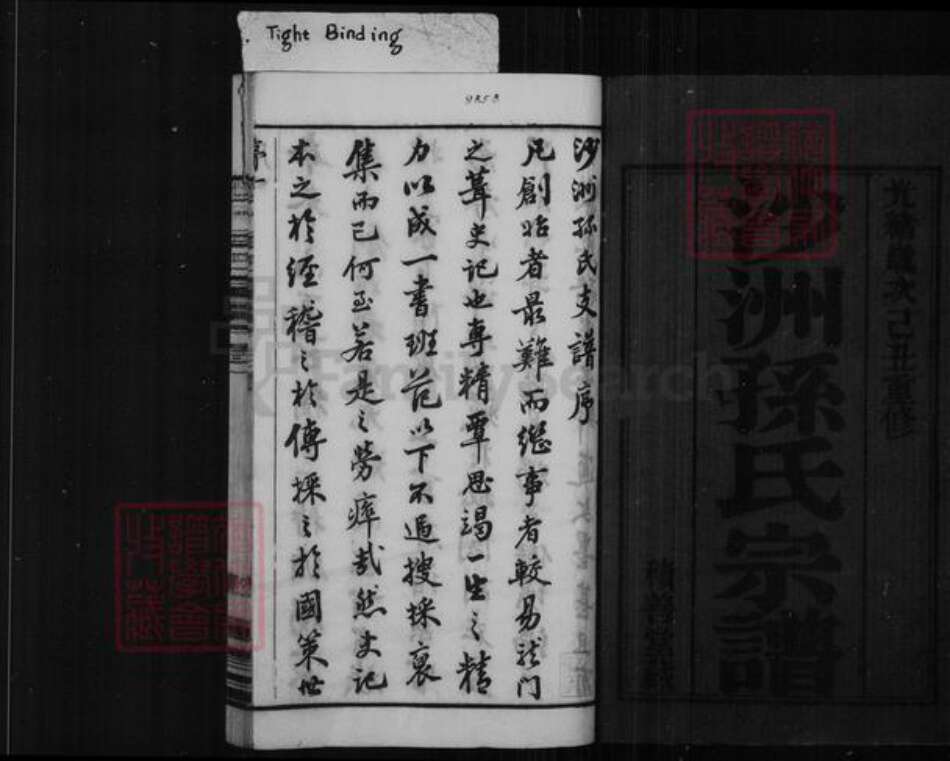 Tight Binding
9858
光緒歲次己丑重修
沙洲孫氏宗譜
積善堂藏
沙洲孫氏支譜序
凡創始者最難而繼事者較易龍門
之葺史記也專精覃思竭一生之精
力以成一書班范以下不過搜採裒
集而已何至若是之勞瘁哉然史記
本之於經稽之於傳採之於國策世
序一
FamilySearch